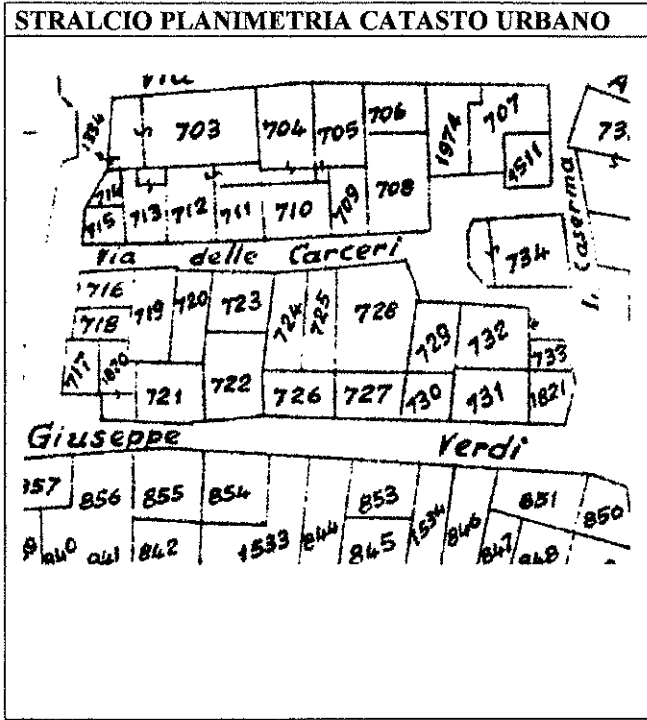 STRALCIO PLANIMETRIA CATASTO URBANO
Via
1334 703 704 705 706 1974 707 1511 73
714 713 712 711 710 709 708
715
Via delle Carceri
734
Caserma
716 719 720 723 724 725 728
718 729 732
717 1820 733
721 722 726 727 730 731 1821
Giuseppe Verdi
857 856 855 854 853 851 850
940 941 842 1533 844 845 1534 846 847 848